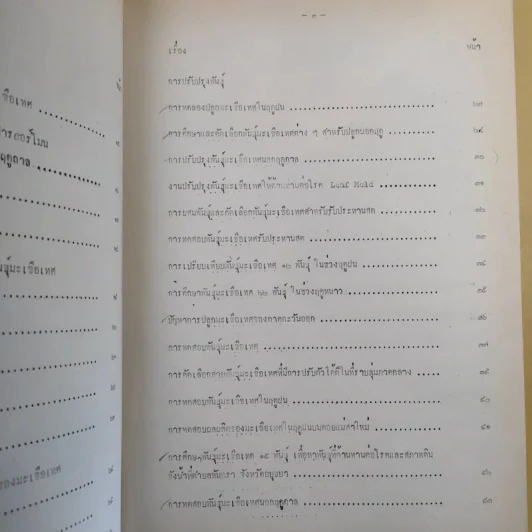 เอเทศ
ารฮอร์โมน
ฤดูกาล
พันธุ์มะเขือเทศ
ของมะเขือเทศ
- ๓ -
เรื่อง หน้า
การปรับปรุงพันธุ์
การทดลองปลูกมะเขือเทศในฤดูฝน ๒๗
การศึกษาและคัดเลือกพันธุ์มะเขือเทศต่าง ๆ สำหรับปลูกนอกฤดู ๒๘
การปรับปรุงพันธุ์มะเขือเทศนอกฤดูกาล ๓๐
งานปรับปรุงพันธุ์มะเขือเทศให้ต้านทานต่อโรค Leaf Mold ๓๑
การผสมพันธุ์และคัดเลือกพันธุ์มะเขือเทศสำหรับรับประทานสด ๓๒
การทดสอบพันธุ์มะเขือเทศรับประทานสด ๓๓
การเปรียบเทียบพันธุ์มะเขือเทศ ๑๒ พันธุ์ ในช่วงฤดูฝน ๓๔
การศึกษาพันธุ์มะเขือเทศ ๒๒ พันธุ์ ในช่วงฤดูหนาว ๓๕
ปัญหาการปลูกมะเขือเทศของภาคตะวันออก ๓๖
การทดสอบพันธุ์มะเขือเทศ ๓๗
การคัดเลือกสายพันธุ์มะเขือเทศที่มีการปรับตัวได้ดีในที่ราบลุ่มภาคกลาง ๓๘
การทดสอบพันธุ์มะเขือเทศในฤดูฝน ๔๐
การทดสอบผลผลิตของมะเขือเทศในฤดูฝนบนดอยแม่สาใหม่ ๔๑
การศึกษาพันธุ์มะเขือเทศ ๑๕ พันธุ์ เพื่อหาพันธุ์ที่ต้านทานต่อโรคและสภาพดิน
ฟ้า จังหวัดอยุธยา ๔๒
การทดสอบพันธุ์มะเขือเทศนอกฤดูกาล ๔๓